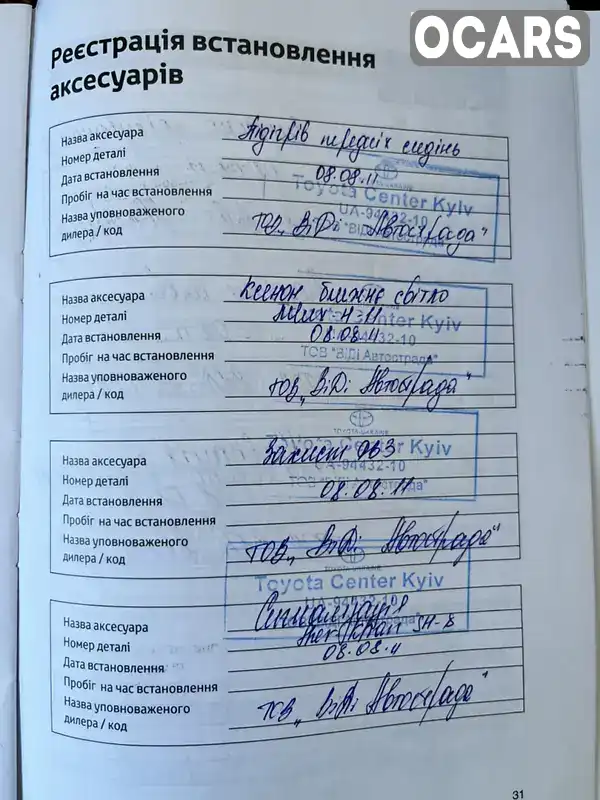 OCARS
Реєстрація встановлення
аксесуарів
Назва аксесуара Підігрів передніх сидінь
Номер деталі
Дата встановлення 08.08.11
Пробіг на час встановлення
Назва уповноваженого
дилера / код ТОВ „ВіДі Автострада"
Toyota Center Kyiv
UA-94432-10
ТОВ "ВіДі Автострада"
Назва аксесуара Ксенон ближнє світло
Номер деталі H-11
Дата встановлення 08.08.11
Пробіг на час встановлення
Назва уповноваженого
дилера / код ТОВ „ВіДі Автострада"
Center Kyiv
94432-10
ТОВ "ВіДі Автострада"
TOYOTA-UKRAINE
Toyota Center Kyiv
UA-94432-10
ТОВ "ВіДі Автострада"
Назва аксесуара Захист ДВЗ
Номер деталі
Дата встановлення 08.08.11
Пробіг на час встановлення
Назва уповноваженого
дилера / код ТОВ „ВіДі Автострада"
TOYOTA-UKRAINE
Toyota Center Kyiv
UA-94432-10
Назва аксесуара Сигналізація
Номер деталі
Дата встановлення 08.08.11
Пробіг на час встановлення
Назва уповноваженого
дилера / код ТОВ „ВіДі Автострада"
31